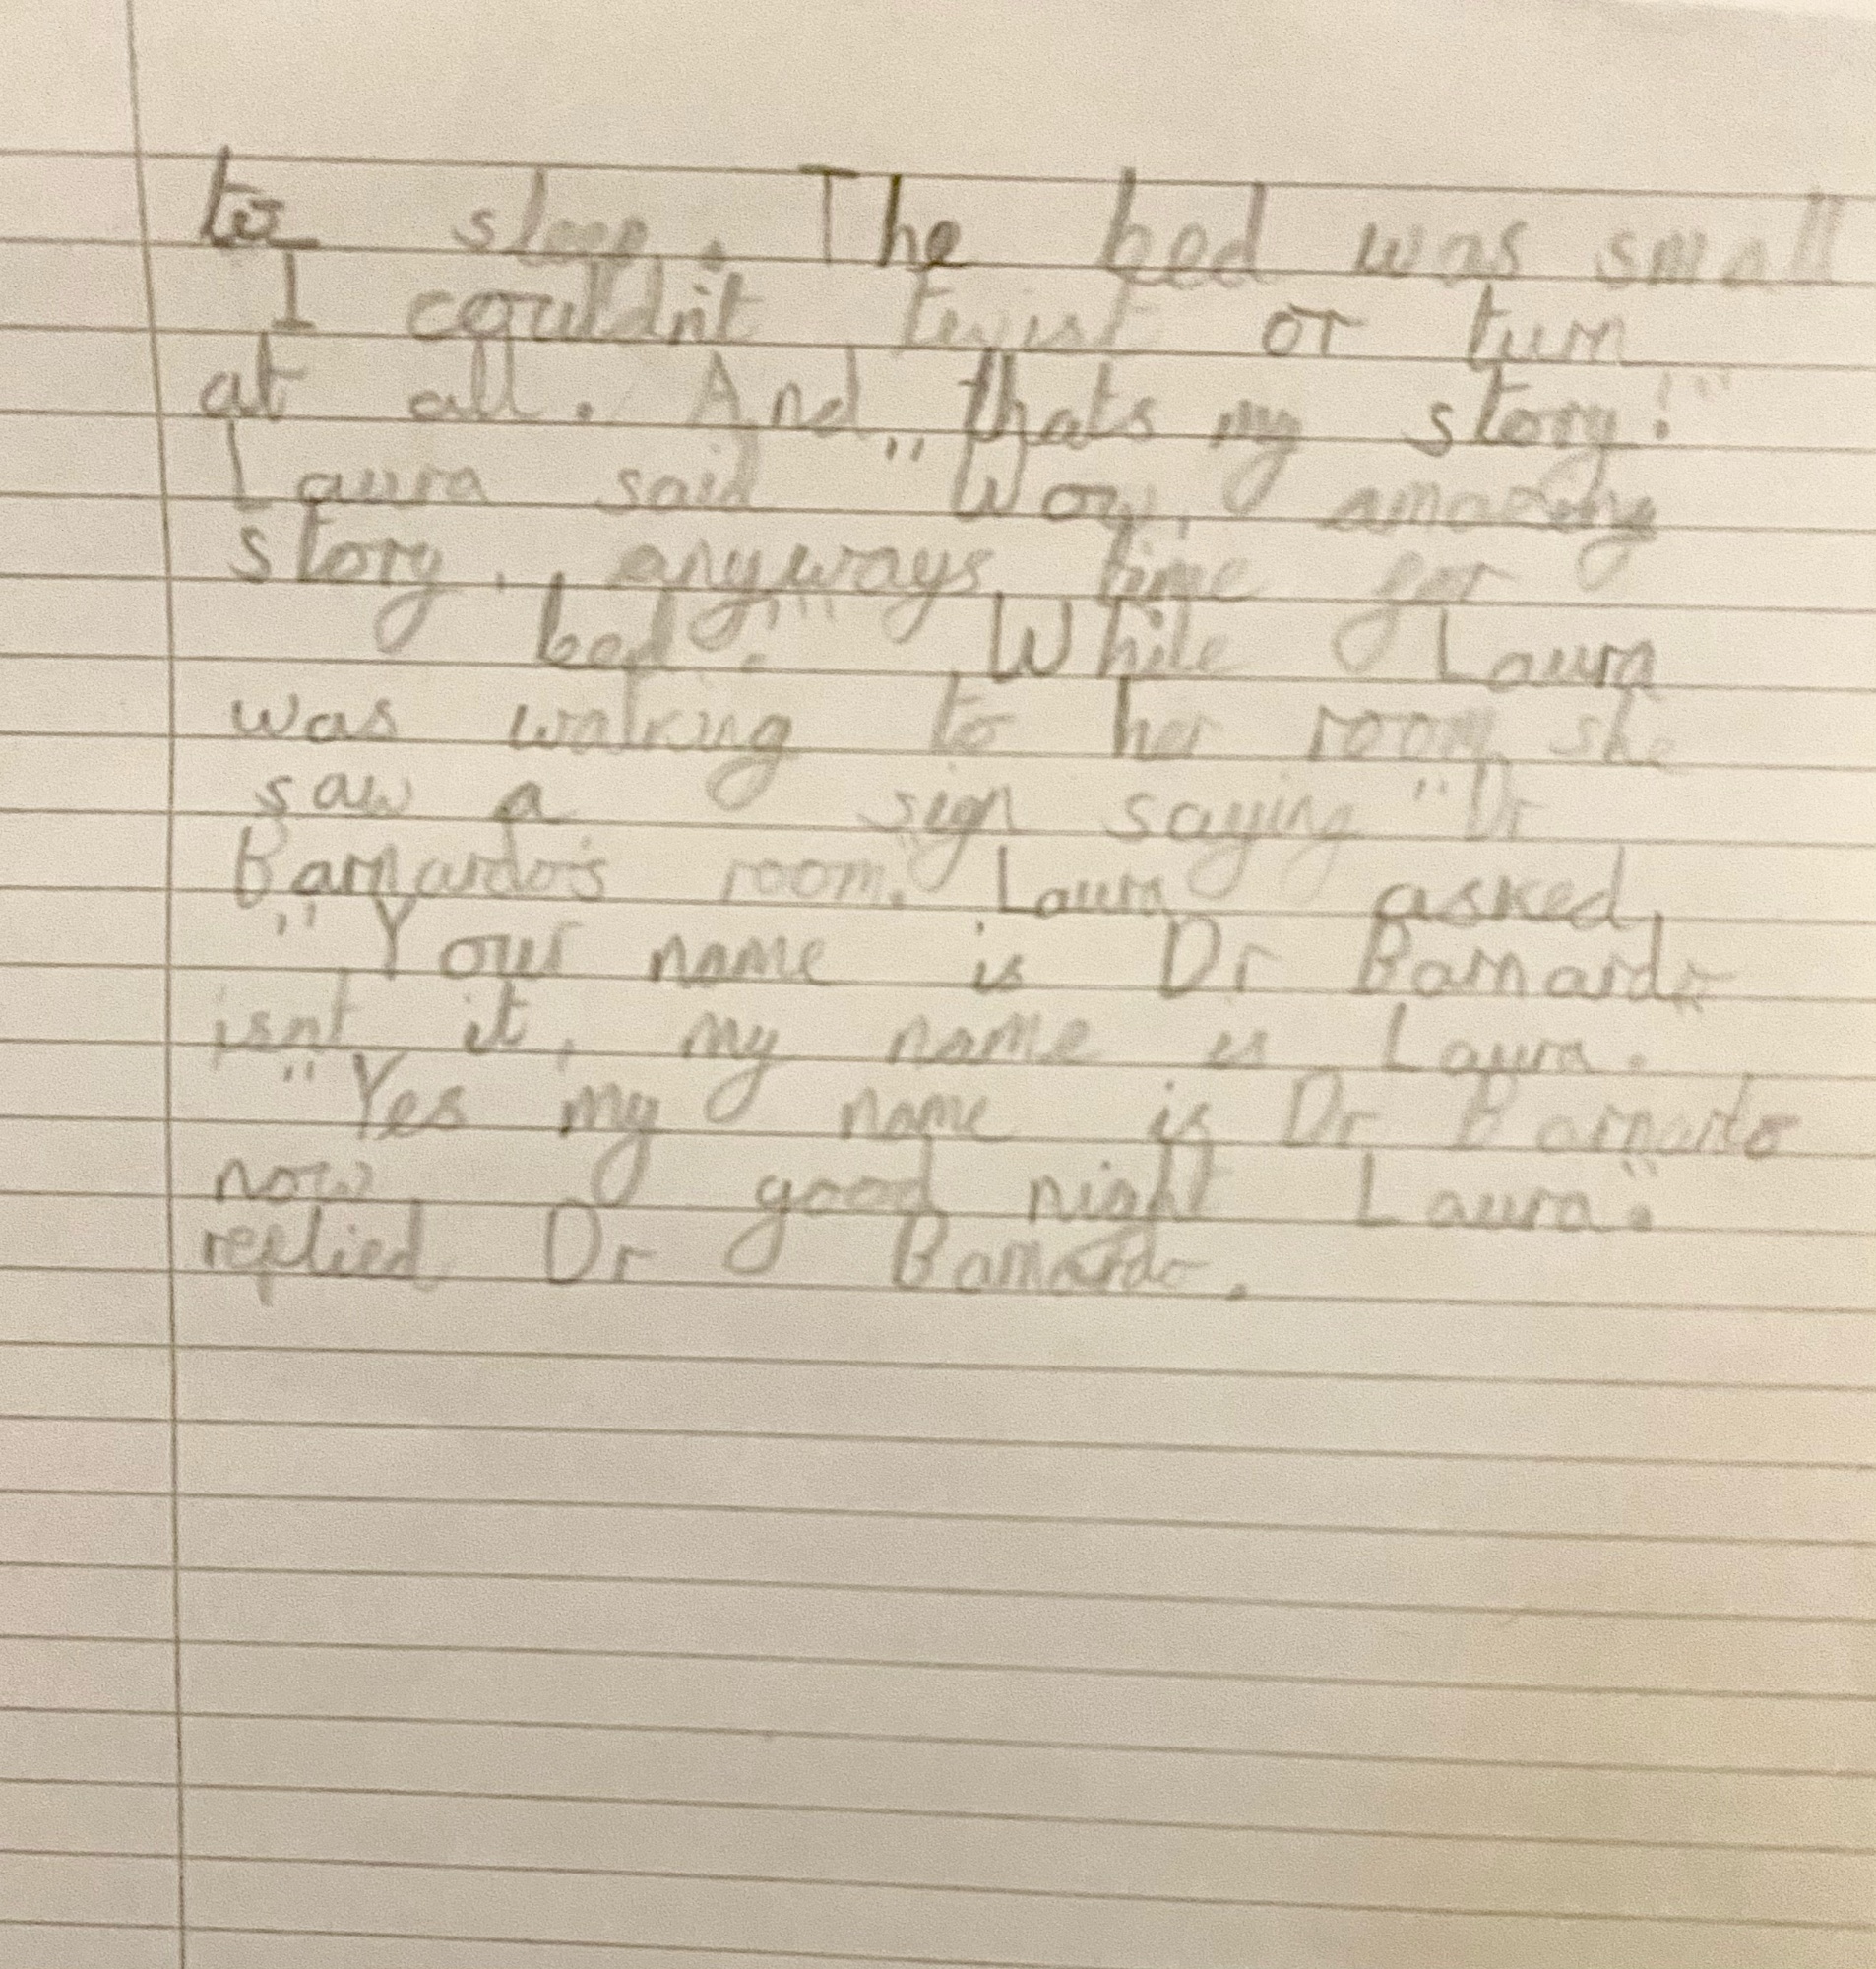 to sleep. The bed was small
I couldn't twist or turn
at all. And thats my story!"
Laura said "Wow, amazing
story, anyways time for
bed." While Laura
was walking to her room she
saw a sign saying "Dr
Barnardo's room." Laura asked,
"Your name is Dr Barnardo
isnt it, my name is Laura.
"Yes my name is Dr Barnardo
now good night Laura."
replied Dr Barnardo.